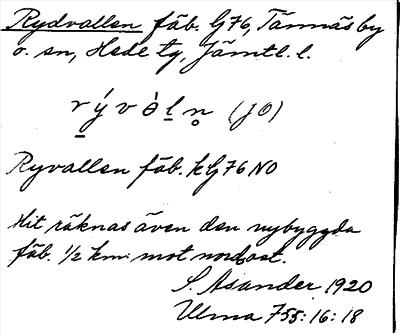 Rydvallen fäb. G76, Tännäs by
o. sn, Hede tg, Jämtl. l.
r̲ ý v ə̀ l̲ n̥ (JO)
Ryvallen fäb. k G76 NO
Hit räknas även den nybyggda
fäb. 1/2 km mot nordost.
S. Asander 1920
Ulma 755:16:18